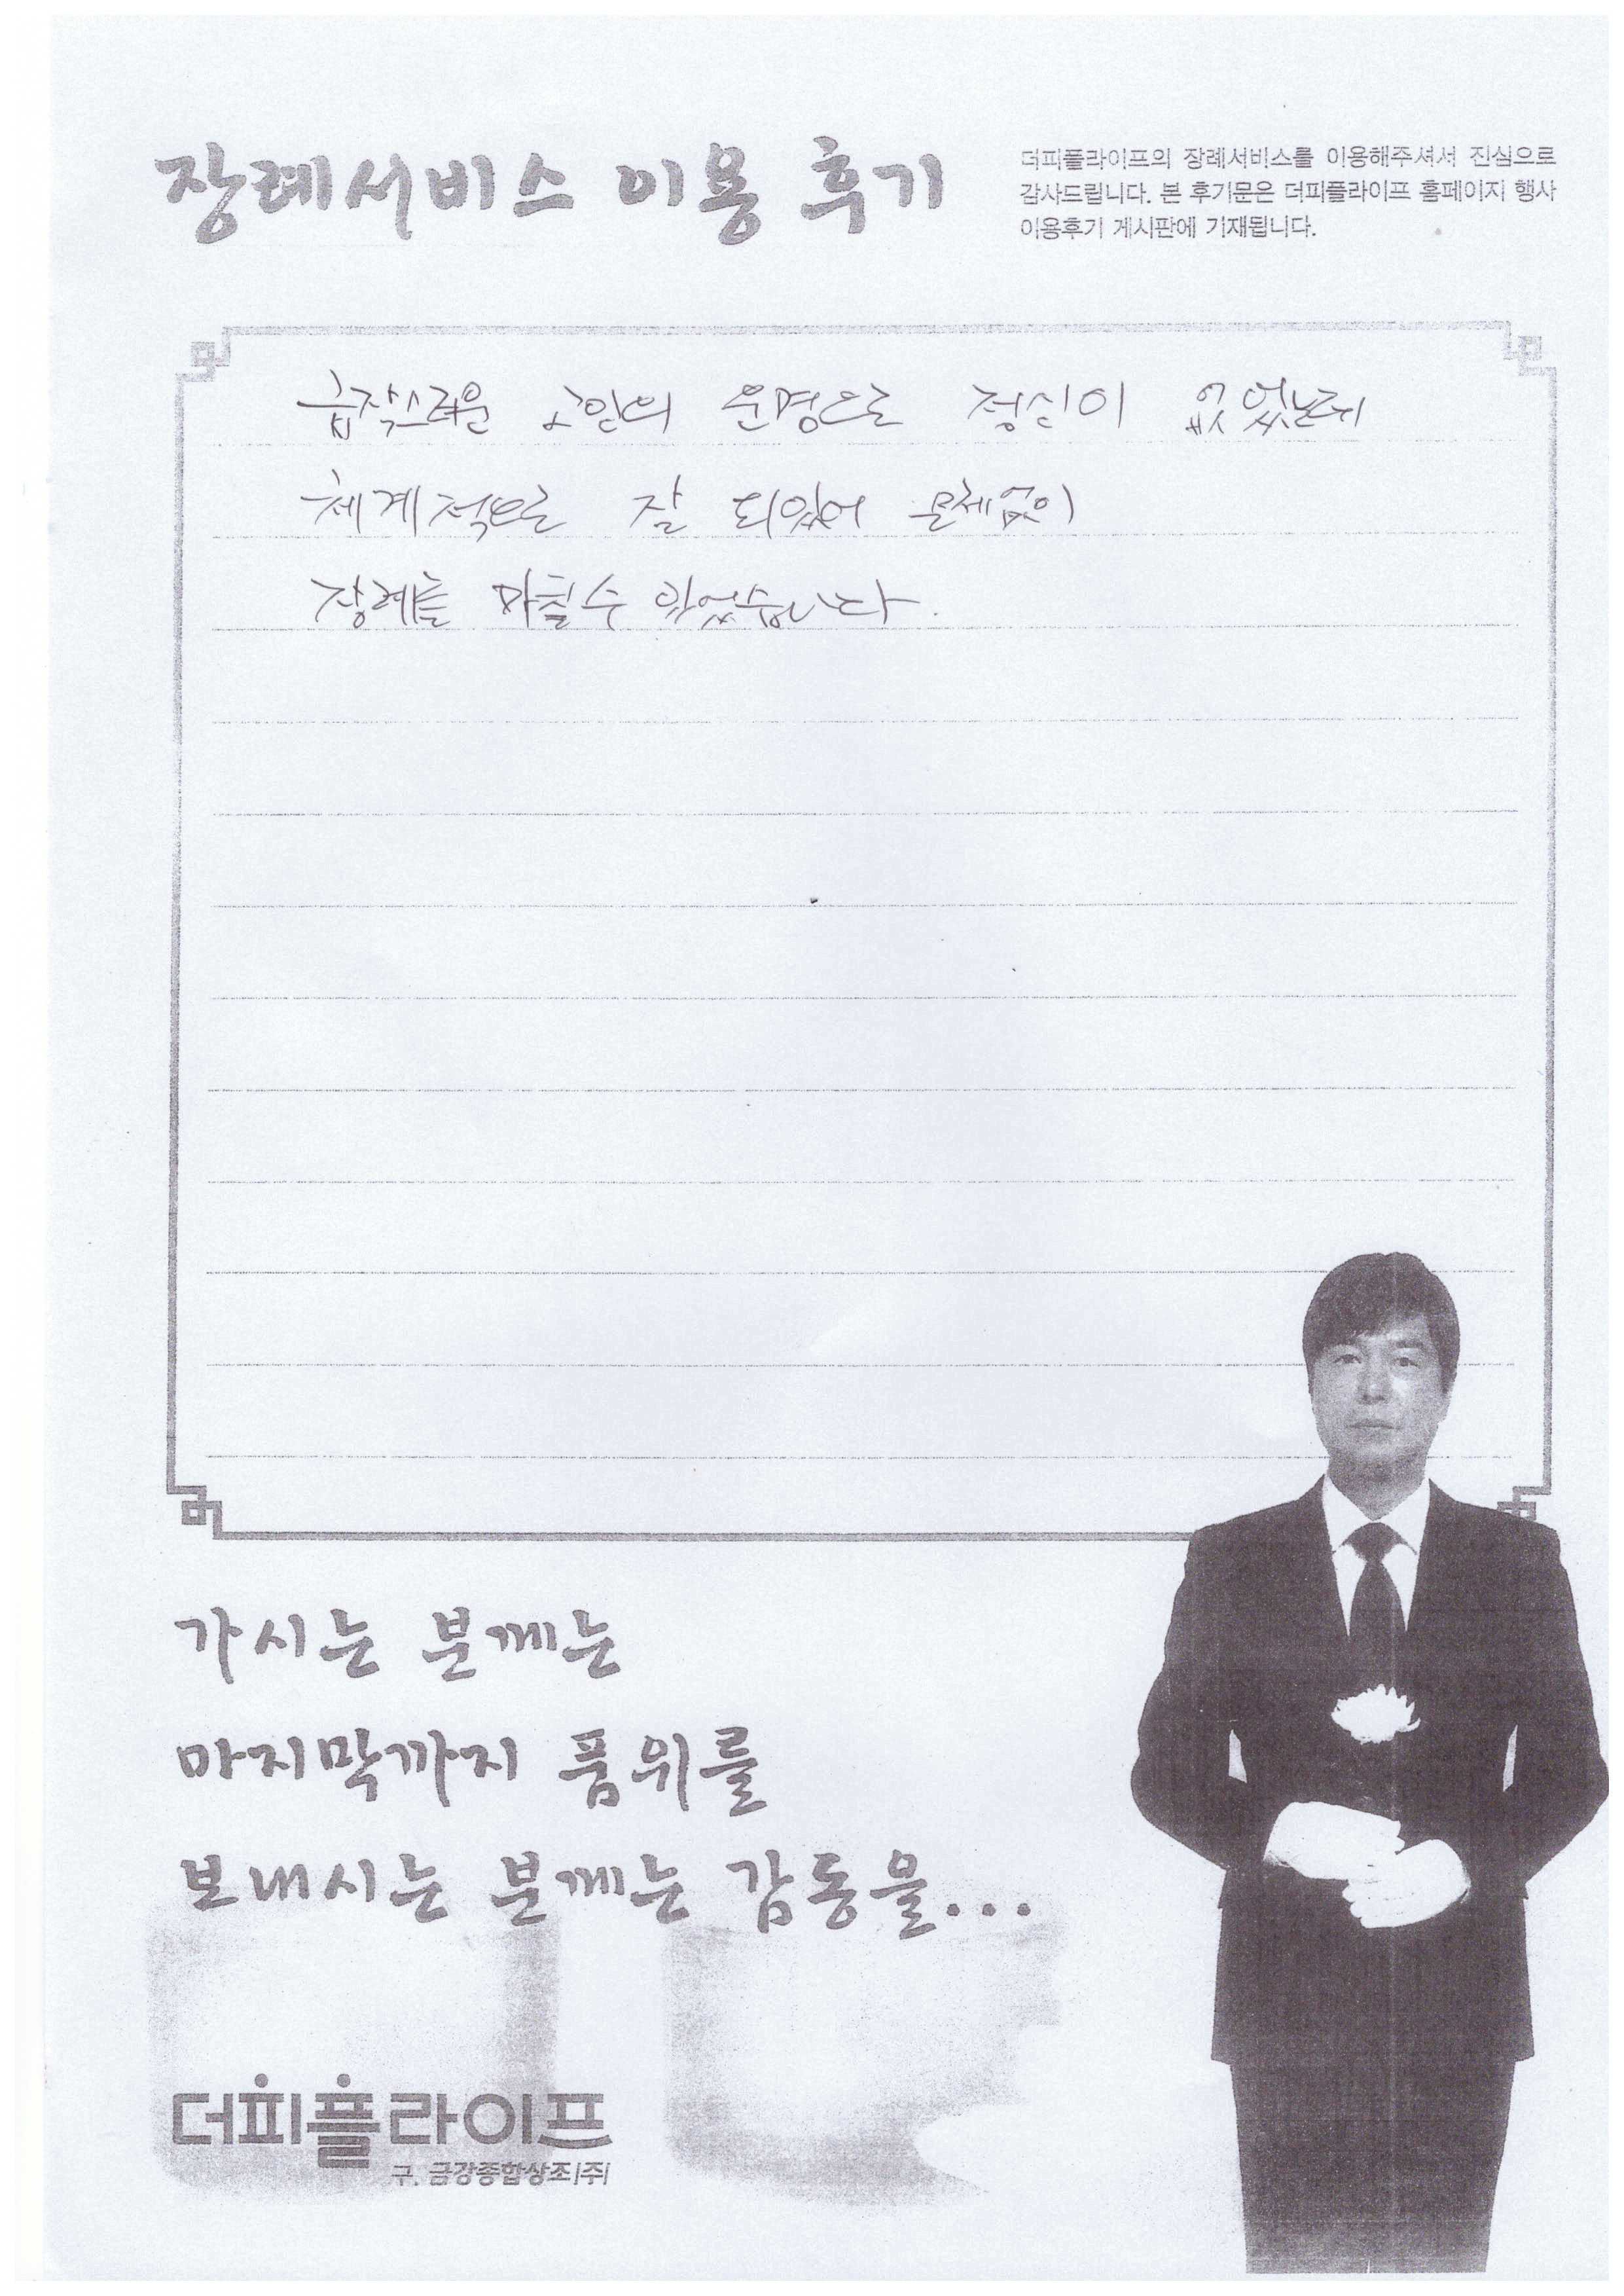 장례서비스 이용 후기
더피플라이프의 장례서비스를 이용해주셔서 진심으로
감사드립니다. 본 후기문은 더피플라이프 홈페이지 행사
이용후기 게시판에 기재됩니다.
급작스러운 고인의 운명으로 정신이 없었는데
체계적으로 잘 되있어 문제없이
장례를 마칠수 있었습니다.
가시는 분께는
마지막까지 품위를
보내시는 분께는 감동을...
더피플라이프
구. 금강종합상조(주)